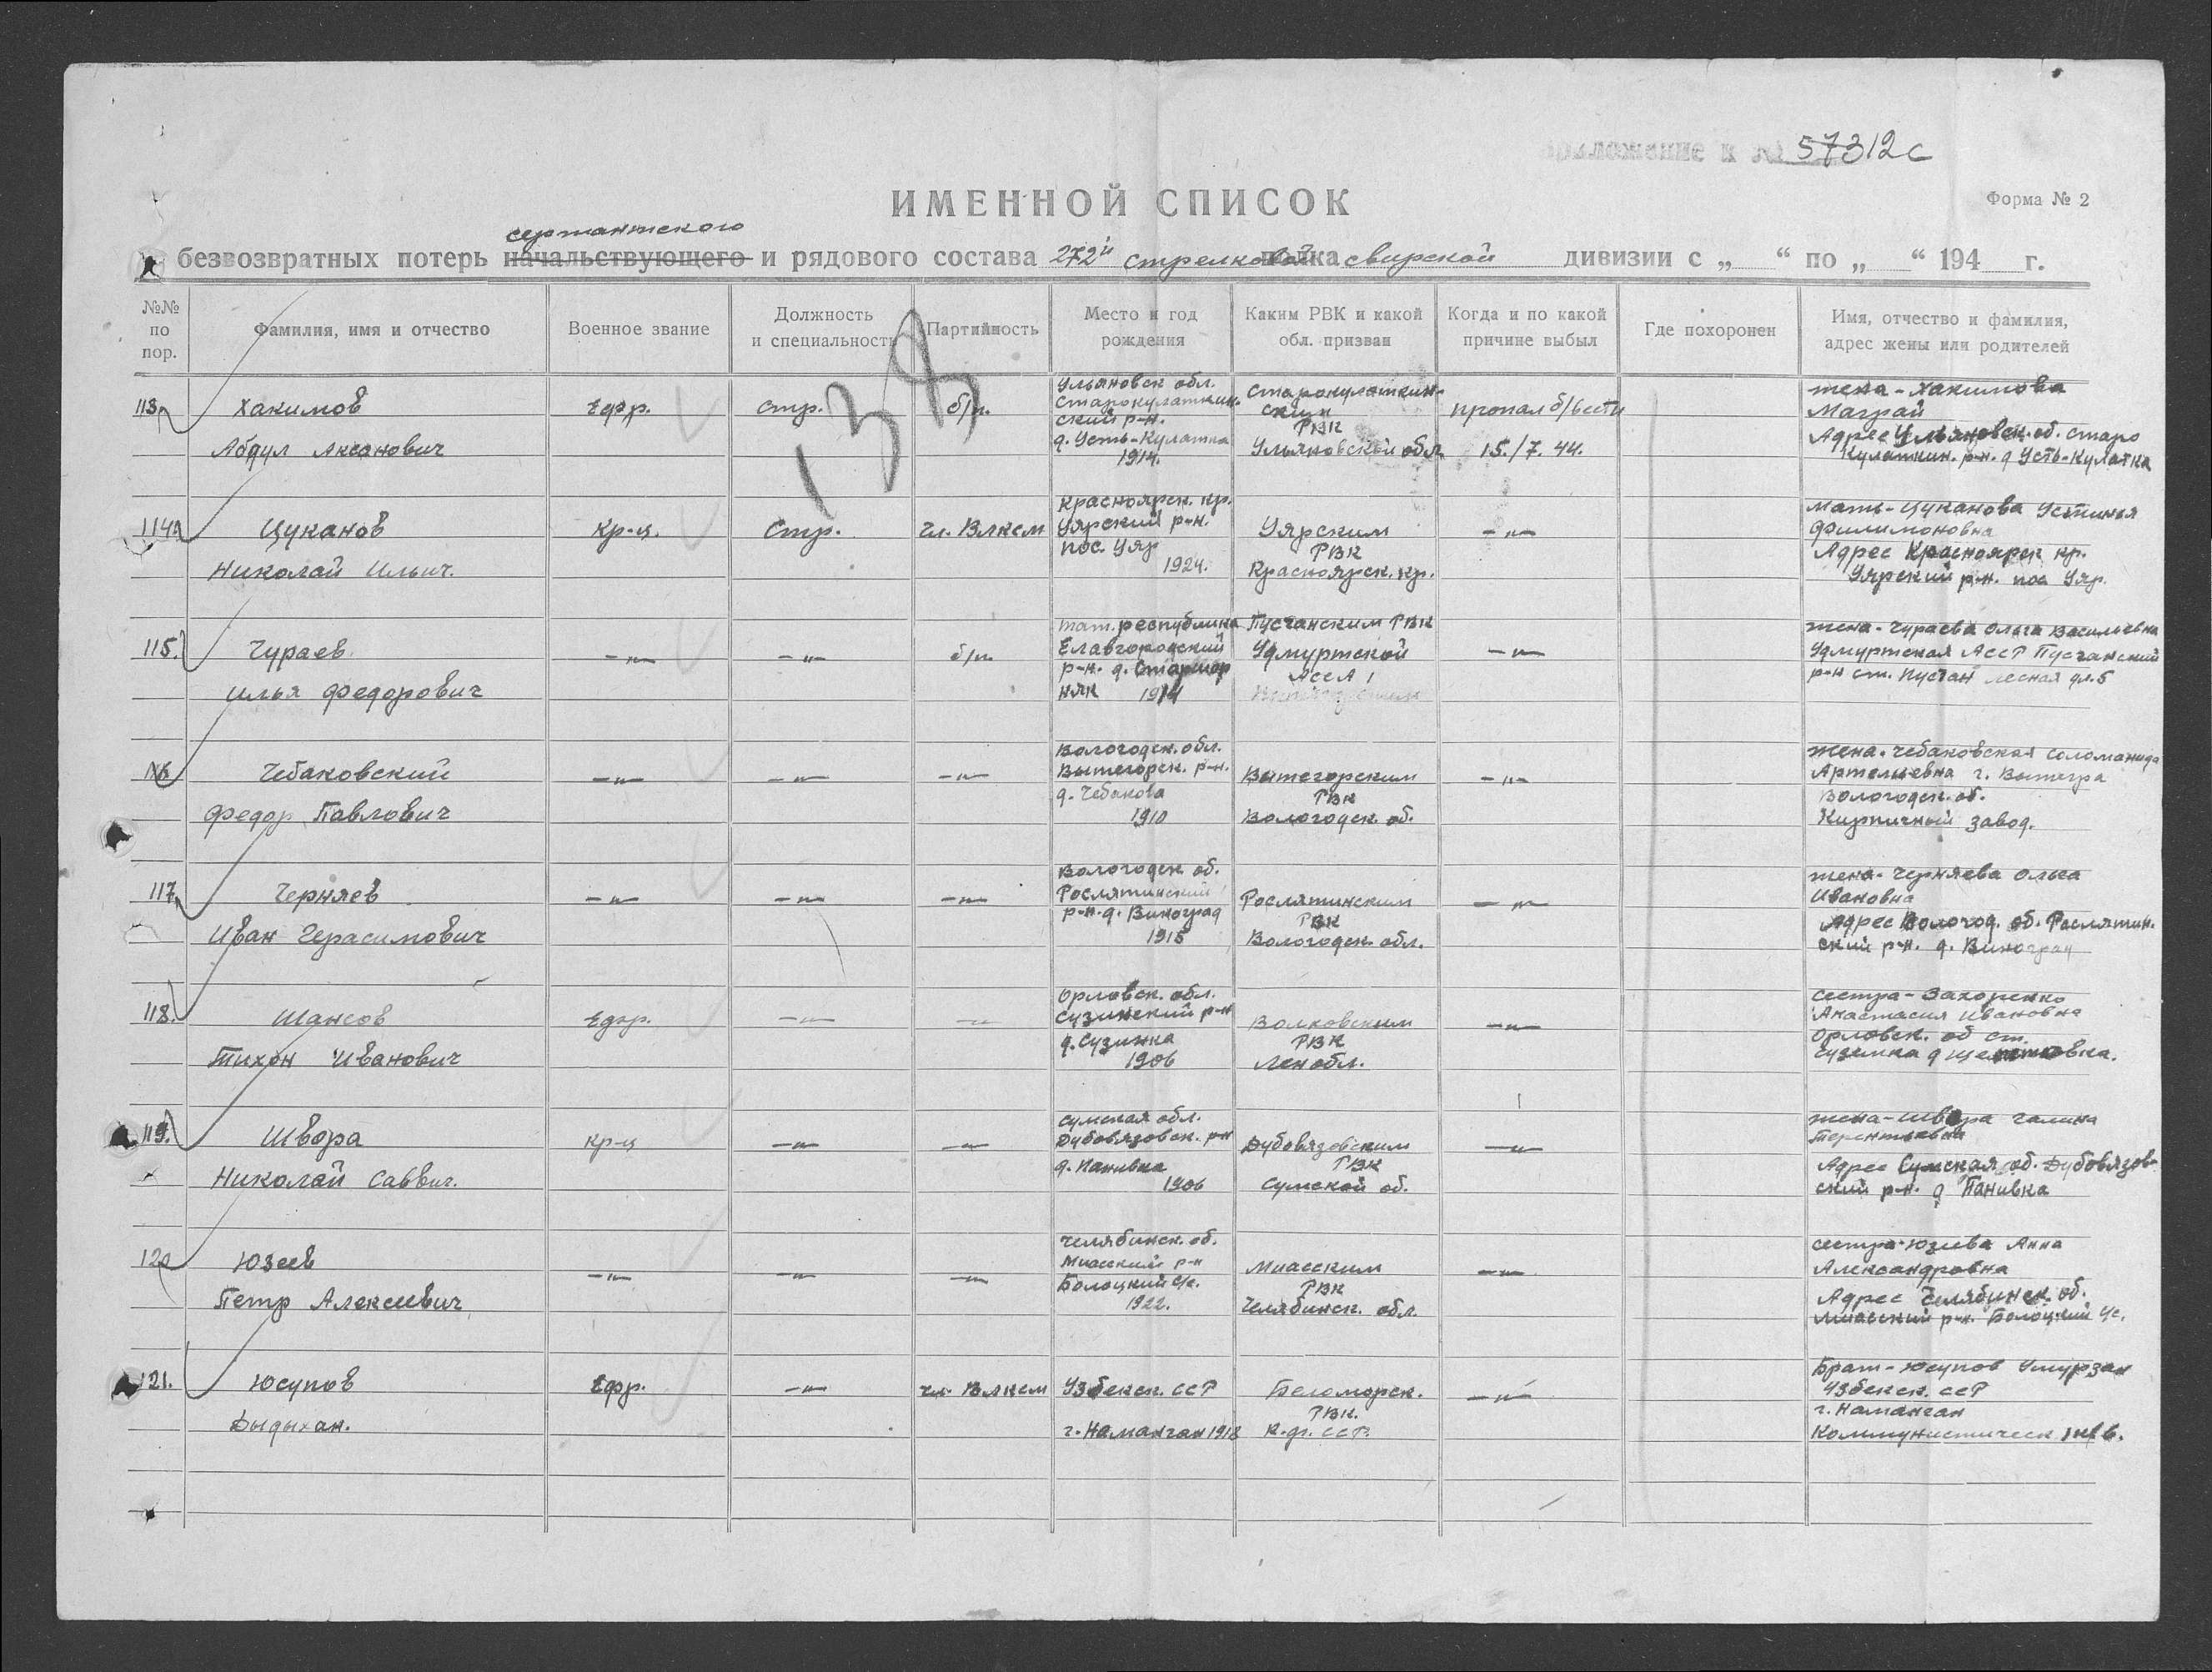 57312с
ИМЕННОЙ СПИСОК
Форма № 2
сержантского
безвозвратных потерь начальствующего и рядового состава 272й стрелковой свирской дивизии с „ “ по „ “ 194 г.
№№ по пор.
Фамилия, имя и отчество
Военное звание
Должность и специальность
Партийность
Место и год рождения
Каким РВК и какой обл. призван
Когда и по какой причине выбыл
Где похоронен
Имя, отчество и фамилия, адрес жены или родителей
138
113. Хакимов Абдул Аксанович
Ефр.
стр.
б/п.
Ульяновск обл.
Старокулаткин-
ский р-н.
д. Усть-Кулатка
1914.
Старокулаткин-
ским
РВК
Ульяновской обл
пропал б/вести
15./7. 44.
жена - Хакимова
Маграй
Адрес Ульяновск. об. Старо
Кулаткин. р-н. д Усть-Кулатка
114. Цуканов Николай Ильич.
Кр-ц.
Стр.
чл. Влксм
Красноярск. кр.
Уярский р-н.
пос. Уяр
1924.
Уярским
РВК
Красноярск. кр.
-"-
мать - Цуканова Устинья
Филимоновна
Адрес Красноярск кр.
Уярский р-н. пос Уяр.
115. Чураев Илья Федорович
-"-
-"-
б/п.
тат. республика
Елавгородский
р-н. д.
1914
Пусчанским РВК
Удмуртской
АссА
-"-
жена - Чураева Ольга Васильевна
Удмуртская АссР Пусчанский
р-н ст. Пустан лесная дл. 5
116 Чебаковский Федор Павлович
-"-
-"-
-"-
Вологодск. обл.
Вытегорск. р-н.
д. Чебакова
1910
Вытегорским
РВК
Вологодск. об.
-"-
жена - Чебаковская Соломанида
Артемьевна г. Вытегра
Вологодск. об.
Кирпичный завод.
117. Черняев Иван Герасимович
-"-
-"-
-"-
Вологодск об.
Рослятинский
р-н. д. Виноград
1915
Рослятинским
РВК
Вологодск. обл.
-"-
жена - Черняева Ольга
Ивановна
Адрес Вологод. об. Рослятин.
ский р-н. д. Виноград
118. Шансов Тихон Иванович
Ефр.
-"-
-"-
Орловск. обл.
Сузинский р-н
д. Сузинка
1906
Волховским
РВК
Лен обл.
-"-
сестра - Захоренко
Анастасия Ивановна
Орловск. об ст.
Суземка д
119. Швора Николай Саввич.
кр-ц
-"-
-"-
Сумская обл.
Дубовязовск. р-н
д. Панивка
1906
Дубовязовским
РВК
Сумской об.
-"-
жена - Швора Галина
Терентьевна
Адрес Сумская об. Дубовязов-
ский р-н. д Панивка
120 Юзеев Петр Алексеевич
-"-
-"-
-"-
Челябинск. об.
Миасский р-н
Болоцкий с/с.
1922.
Миасским
РВК
Челябинск. обл.
-"-
сестра - Юзеева Анна
Александровна
Адрес Челябинск. об.
Миасский р-н. Болоцкий с/с.
121. Юсупов Дыдыхан.
Ефр.
-"-
чл. Влксм
Узбекск. ССР
г. Наманган 1918
Беломорск.
РВК.
К.ф. ССР.
-"-
Брат - Юсупов Умурзак
Узбекск. ССР
г. Наманган
Коммунистическ